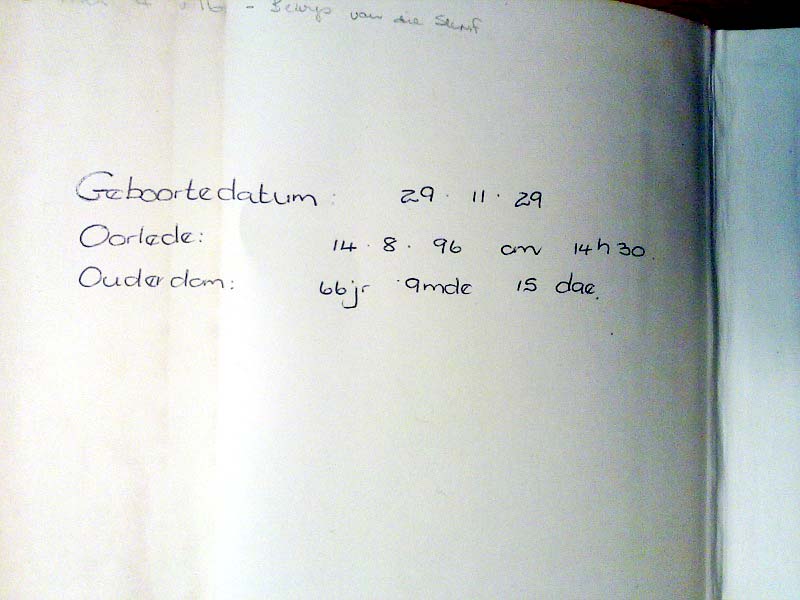 4 : 16 - Bewys van die Skrif
Geboortedatum : 29 . 11 . 29
Oorlede: 14 . 8 . 96 om 14h30.
Ouderdom: 66jr 9mde 15 dae.